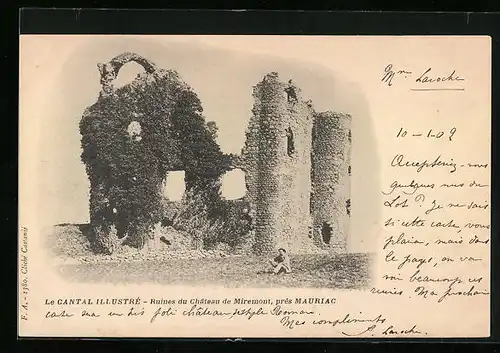 Mme Laroche
10-1-02
Accepteriez-vous
quelques vues du
Lot? Je ne sais
si cette carte vous
plaira, mais dans
le pays, on va
voir beaucoup ces
ruines. Ma prochaine
Le CANTAL ILLUSTRÉ - Ruines du Château de Miremont, près MAURIAC
carte sera un très joli château style Roman.
Mes compliments
Laroche
F. A. - 1380. Cliché Castanié